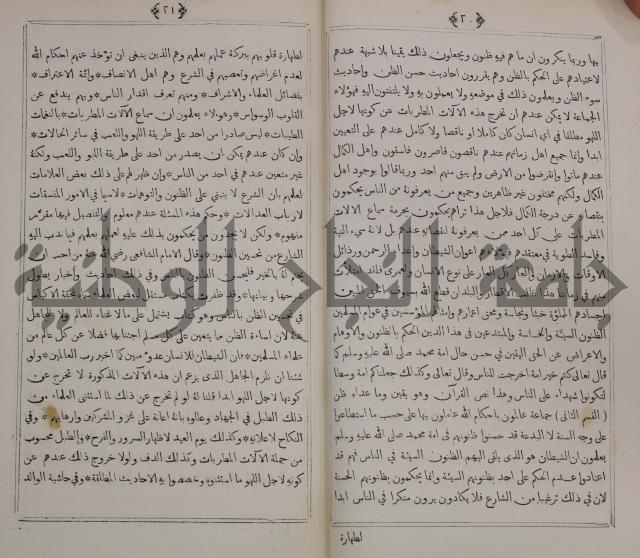 ﴿٢٠﴾
بها وربما ينكرون ان ما هم فيه ظنون ويجعلون ذلك يقينا بلا شبهة عندهم
لاعتيادهم على الحكم بالظن وهم يقررون احاديث حسن الظن واحاديث
سوء الظن ويعلمون ذلك في موضعه ولا يعملون به ولا يلتفتون اليه فهؤلاء
الجماعة لا يمكن عندهم ان تخرج هذه الآلات المطربات عن كونها لاجل
اللهو مطلقا في اي انسان كان كاملا او ناقصا ولا كامل عندهم على التعيين
ابدا وانما جميع اهل زمانهم عندهم ناقصون قاصرون فاسقون واهل الكمال
عندهم ماتوا وانقرضوا من الارض ولم يبق منهم احد وربما قالوا بوجود اهل
الكمال ولكنهم مختفون غير ظاهرين وجميع من يعرفونه من الناس يحكمون
بنقصانه عن درجة الكمال فلاجل هذا تراهم يحكمون بحرمة سماع الآلات
المطربات على كل احد من يعرفونه لنقصانه عندهم بل لانه سيء النية
وفاسد الطوية في معتقدهم فهؤلاء هم اعوان الشيطان واعداء الرحمن ورذائل
الاوقات والازمان والعار كل العار على نوع الانسان ولعمري فلقد امتلأت
منهم في زماننا هذا الاقطار والبلدان قطع الله
اجسادهم المملوءة خبثا ونجاسة ومحى اثارهم في عوام المسلمين
الظنون السيئة والخساسة والمبتدعين في هذا الدين الحكم بالظنون والاوهام
والاعراض عن الحق اليقين في حسن حال امة محمد صلى الله عليه وسلم كما
قال تعالى كنتم خير امة اخرجت للناس وقال تعالى وكذلك جعلناكم امة وسطا
لتكونوا شهداء على الناس وهذا نص القرآن وهو يقين وما عداه ظن
﴿ القسم الثاني ﴾ جماعة عالمون باحكام الله عاملون بها على حسب ما استطاعوا
على وجه السنة لا البدعة قد حسنوا ظنونهم في امة محمد صلى الله عليه وسلم
يعلمون ان الشيطان هو الذي يلقي اليهم الظنون السيئة في الناس فهم قد
اعتادوا عدم الحكم على احد بظنونهم السيئة وانما يحكمون بظنونهم الحسنة
لان في ذلك ترغيبا من الشارع فلا يكادون يرون منكرا في الناس ابدا
لطهارة
﴿٢١﴾
لطهارة قلوبهم ببركة عملهم بعلمهم وهم الذين ينبغي ان تؤخذ عنهم احكام الله
لعدم اغراضهم وتعصبهم في الشرع وهم اهل الانصاف * وائمة الاعتراف *
بفضائل العلماء والاشراف * ومنهم تعرف اقدار الناس * وبهم يندفع عن
القلوب الوسواس * وهؤلاء يعلمون ان سماع الآلات المطربات * بالنغمات
الطيبات * ليس صادرا من احد على طريقة اللهو واللعب في سائر الحالات *
وان كان عندهم يمكن ان يصدر من احد على طريقة اللهو واللعب ولكنه
غير متعين عندهم في احد من الناس * وان ظهر لهم على ذلك بعض العلامات
لعلمهم بان الشرع لا ينبني على الظنون والتوهمات * لاسيما في الامور المفسقات
لارباب العدالات * وحكم هذه المسئلة عندهم معلوم والتفصيل فيها مقرر
مفهوم * ولكن لا يجدون من يحكمون بذلك عليه لعملهم بعلمهم فيما ندب اليه
الشارع من تحسين الظنون * وقال الامام الشافعي رضي الله عنه من احب ان
يختم له بالخير فليحسن الظنون بالناس وفي ذلك احاديث واخبار يطول
شرحها وبيانها * وقد ظفرت بكتاب مستقل لبعض العلماء
تحسين الظن بالناس وهو كتاب يشتمل على ما لا غناء للعالم ولا للجاهل
عنه لان اساءة الظن مما يتعين على كل مسلم اجتنابها فضلا عن كل عالم من
علماء المسلمين * فان الشيطان للانسان عدو مبين كما اخبر رب العالمين * ولو
شئنا ان نلزم الجاهل الذي يزعم ان هذه الآلات المذكورة لا تخرج عن
كونها لاجل اللهو ابدا قلنا له لو لم تخرج عن ذلك لما استثنى العلماء من
ذلك الطبل في الجهاد وعللوه بانه اعانة على غزو المشركين وارهابهم * وفي
النكاح لاعلانه * وكذلك يوم العيد لاظهار السرور والفرح * والطبل محسوب
من جملة الآلات المطربات وكذلك الدف ولولا خروج ذلك عندهم عن
كونه لاجل اللهو ما استثنوه وخصصوا به الاحاديث المطلقة * وفي حاشية الوالد
جامعة النجاح الوطنية